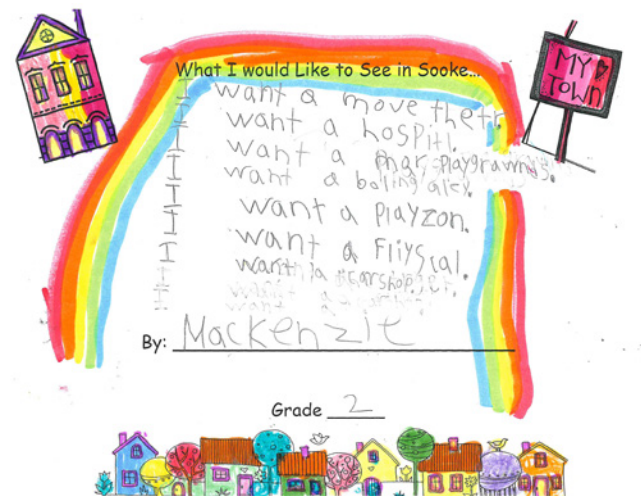 What I would Like to See in Sooke...
MY
TOWN
I want a move thetr
I want a hospitl.
I want a playgrawnds.
I want a boling aley.
I want a Playzon.
I want a Fliyscal.
I want a
want a
By: Mackenzie
Grade 2